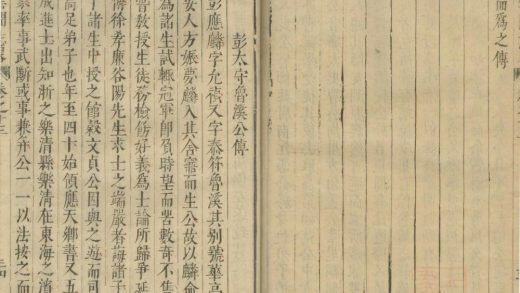 而為之傳
彭太守魯溪公傳
彭應麟字允禎又字泰符魯溪其別號華亭
安人方娠夢麟入其舍寤而生公故以麟命
為諸生試輒冠軍即負時望而苦數奇不售
教授生徒務檢飭好義為士論所歸爭延
徐孝廉谷陽先生求士之端嚴者誨諸子
諸生中授之館穀文貞公因與之遊而司
高足弟子也年至四十始領應天鄉書又五
成進士出知浙之樂清縣樂清在東海之濱
率事武斷或事兼并公一一以法按之而
卷之十三